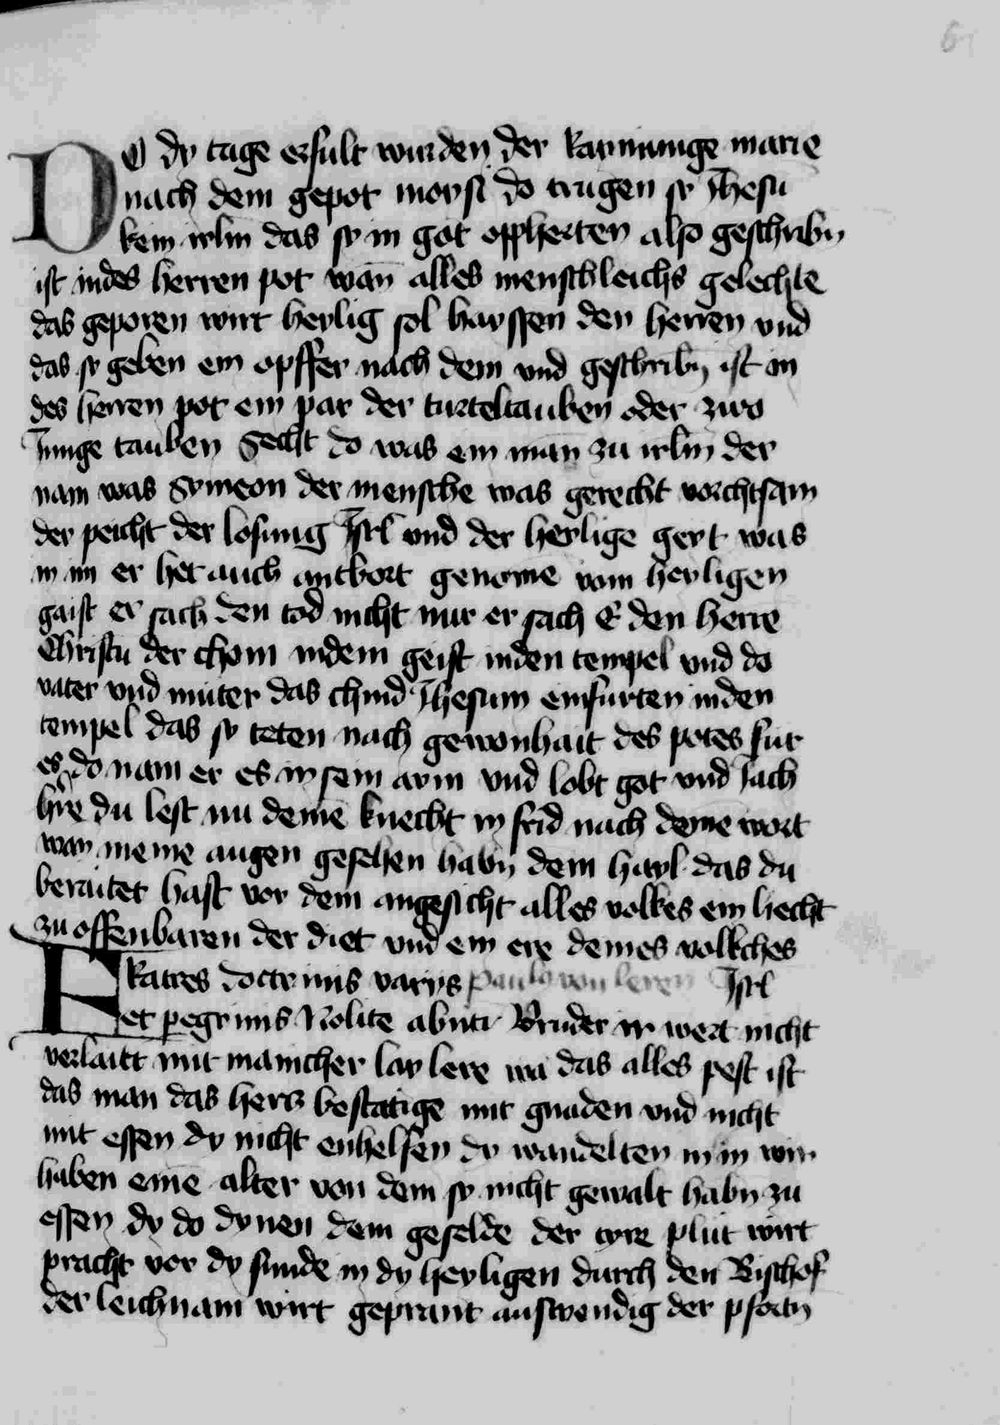 DO dy tage erfult wurden der Raynunge marie
nach dem gepot moysi do trugen sy Jhesu
kein irlm das sy in got oppherten also geschribn
ist indes herren pot wan alles menschleichs gelechte
das geporen wirt heylig sol hayssen den herren und
das sy geben ein opffer nach dem und geschribn ist in
des herren pot ein par der turteltauben oder zwo
Junge tauben Secht do was ein man zu irlm der
nam was Symeon der mensche was gerecht vorchtsam
der peicht der losung Isrl und der heylige geyt was
in im er het auch antbort genome vom heyligen
gaist er sach den tod nicht nur er sach E den herre
Christu der chom indem geist inden tempel und do
vater und muter das chind Jhesum einfurten inden
tempel das sy teten nach gewonhait des potes fur
es do nam er es in sein arm und lobt got und Jach
hre du lest nu deine knecht in frid nach deyne wort
wan meine augen gesehen habn dein hayl das du
beraitet hast vor dem angesicht alles volkes ein liecht
zu offenbaren der diet und ein ere deines volkches
Fratres doctrinis varys paulo von leren Isrl
et pegrinis Nolite abuti Bruder ir wert nicht
verlaitt mit mancher lay lere wa das alles pest ist
das man das hercz bestatige mit gnaden und nicht
mit essen dy nicht enhelfen dy wandelten in in wir
haben eine alter von dem sy nicht gewalt habn zu
essen dy do dynen dem geselde der tyre plut wirt
pracht vor dy sunde in dy heyligen durch den Bischof
der leichnam wirt geprant auswendig der pfortn